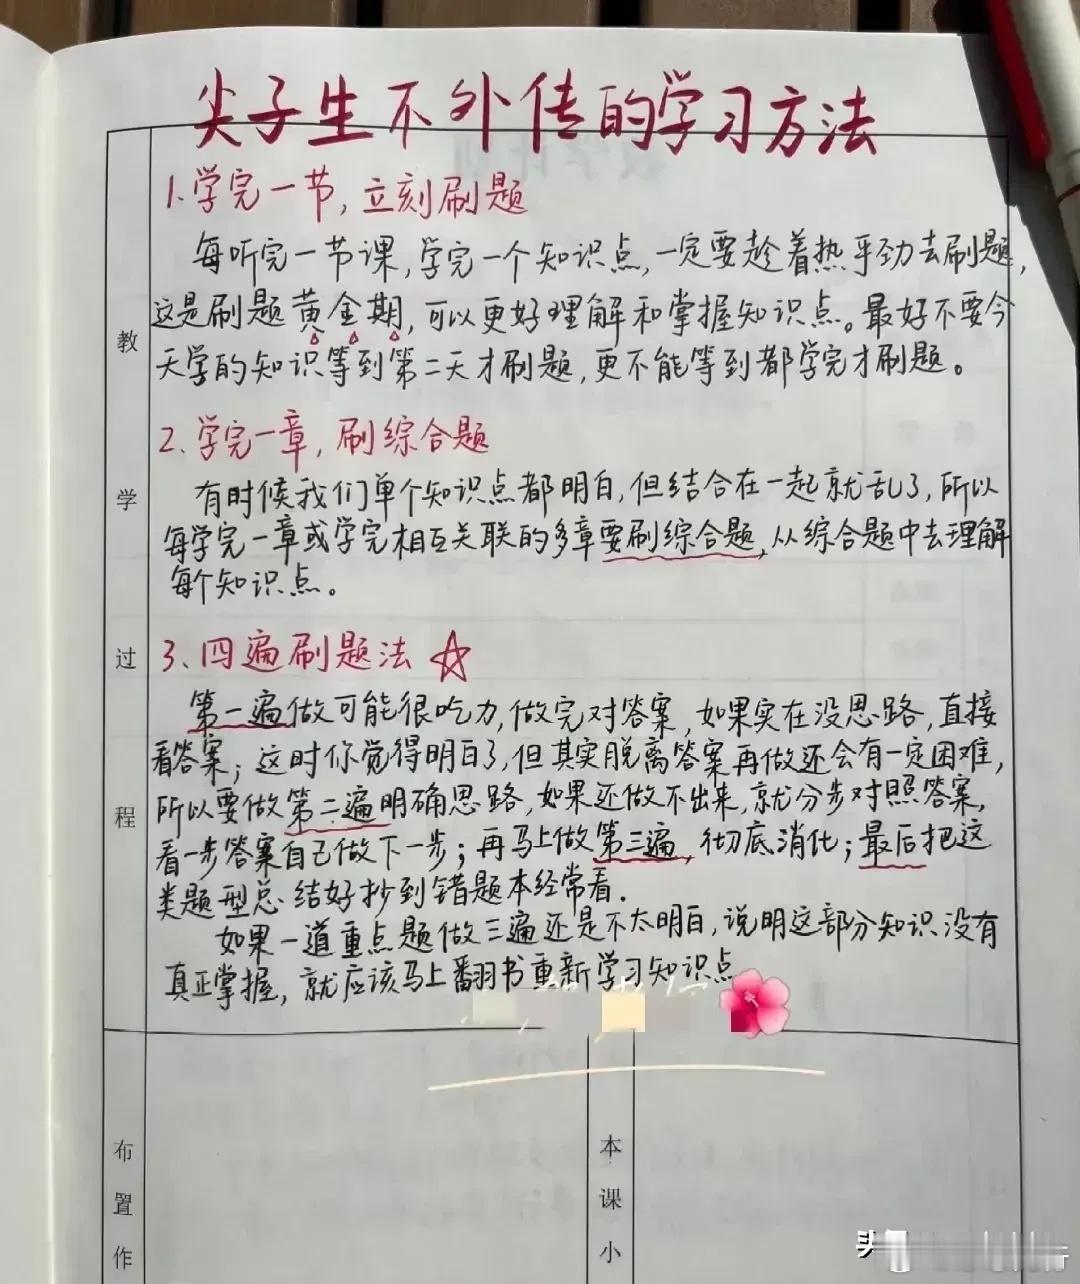 尖子生不外传的学习方法
1.学完一节,立刻刷题
每听完一节课,学完一个知识点,一定要趁着热乎劲去刷题,
这是刷题黄金期,可以更好理解和掌握知识点。最好不要今
天学的知识等到第二天才刷题,更不能等到都学完才刷题。
2.学完一章,刷综合题
有时候我们单个知识点都明白,但结合在一起就乱了,所以
每学完一章或学完相互关联的多章要刷综合题,从综合题中去理解
每个知识点。
3、四遍刷题法
第一遍做可能很吃力,做完对答案,如果实在没思路,直接
看答案;这时你觉得明白了,但其实脱离答案再做还会有一定困难,
所以要做第二遍明确思路,如果还做不出来,就分步对照答案,
看一步答案自己做下一步;再马上做第三遍,彻底消化;最后把这
类题型总结好抄到错题本经常看.
如果一道重点题做三遍还是不太明白,说明这部分知识没有
真正掌握,就应该马上翻书重新学习知识点
教
学
过
程
布
置
作
本
课
小
头